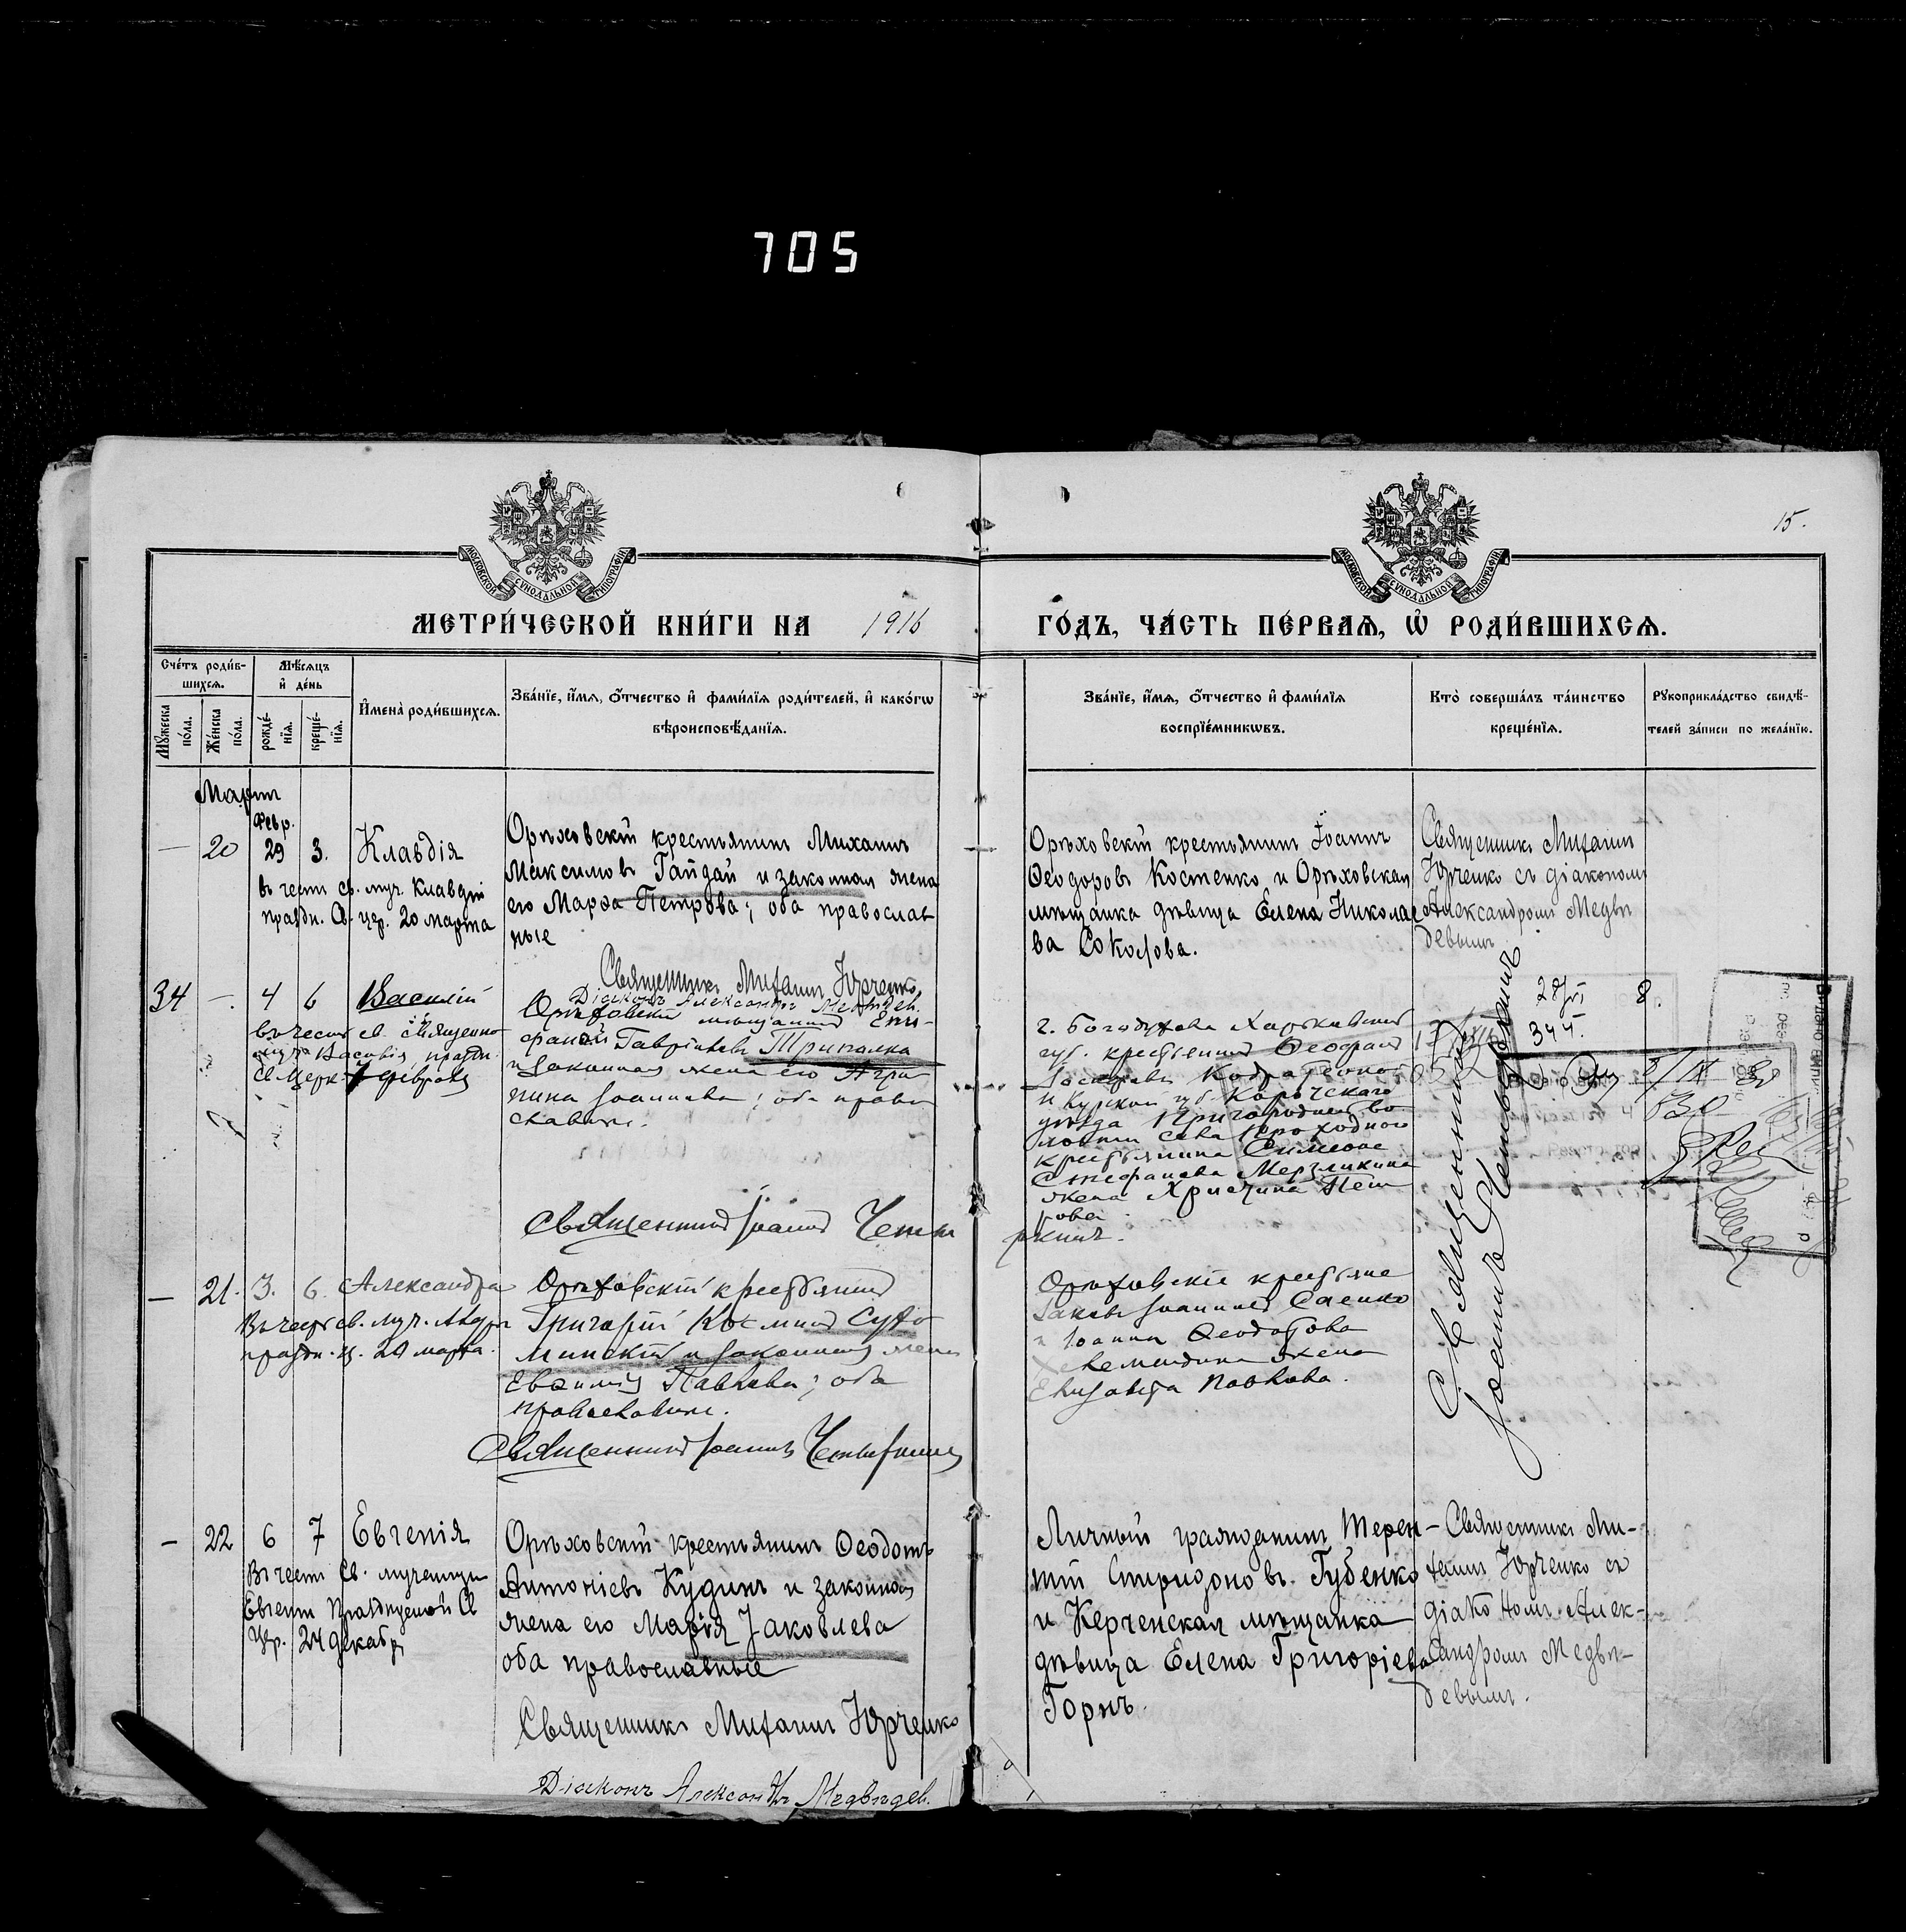 705
15.
МОСКОВСКОЙ СѴНОДАЛЬНОЙ ТИПОГРАФІИ
МОСКОВСКОЙ СѴНОДАЛЬНОЙ ТИПОГРАФІИ
МЕТРИ́ЧЕСКОЙ КНИ́ГИ НА 1916
ГО́ДЪ, ЧА́СТЬ ПЕ́РВАѦ, Ѡ҆ РОДИ́ВШИХСѦ.
Сче́тъ роди́в-
шихсѧ.
Мѣ́сѧцъ
и҆ де́нь
Мꙋ́жеска по́ла.
Же́нска по́ла.
рожде́-нїѧ.
креще́-нїѧ.
И҆мена̀ роди́вшихсѧ.
Зва́нїе, и҆́мѧ, о҆́тчество и҆ фами́лїѧ роди́телей, и҆ како́гѡ
вѣроисповѣ́данїѧ.
Зва́нїе, и҆́мѧ, о҆́тчество и҆ фами́лїѧ
воспрїе́мникѡвъ.
Кто̀ соверша́лъ та́инство
креще́нїѧ.
Рꙋкоприкла́дство свидѣ́-
телей за́писи по жела́нїю.
Мартъ
Февр.
— 20 29 3. Клавдія
въ честь св. муч. Клавдіи
праздн. Св. цер. 20 марта
Орѣховскій крестьянинъ Михаилъ
Максимовъ Гайдай и законная жена
его Марѳа Петрова; оба православ
ные
Священникъ Михаилъ Юрченко
Діаконъ Александръ Медвѣдев.
Орѣховскій крестьянинъ Іоаннъ
Ѳеодоровъ Костенко и Орѣховская
мѣщанка дѣвица Елена Николае
ва Соколова.
Священникъ Михаилъ
Юрченко съ діакономъ
Александромъ Медвѣ
девымъ
34 —. 4 6 Василій
въ честь св. Священно
муч. Василія, праздн.
св. Церк. 7 февраля
Орѣховскій мѣщанинъ Епи-
фаній Гавріиловъ Триполка
и законная жена его Агри
пина Іоаннова; оба право
славные.
Священникъ Іоаннъ Четы
ркинъ.
г. Богодухова Харьковской
губ. крестьянинъ Ѳеофанъ
и Курской губ. Корочского
уѣзда Пригородней во
лости села Проходного
крестьянина Симеона
Стефанова Мерзликина
жена Христина Пет
рова
28/VI 8.
344.
— 21. 3. 6. Александра
Въ честь св. муч. Алдры
праздн. ц. 20 марта.
Орѣховскій крестьянинъ
Григорій Косминъ Сухо
млинскій и законная жена
Евѳимія Павлова; оба
православные.
Священникъ Іоаннъ Четыркинъ
Орѣховскіе крестьяне
Іаковъ Іоанновъ Саенко
и Іоанна Ѳеодотова
жена
Елизавета Павлова.
Священникъ
Іоаннъ Четыркинъ
— 22 6 7 Евгенія
Въ честь Св. мученицы
Евгеніи празднуемой Св
Цер. 24 декабр
Орѣховскій крестьянинъ Ѳеодотъ
Антоніевъ Кудинъ и законная
жена его Марія Іаковлева
оба православные
Священникъ Михаилъ Юрченко
Діаконъ Александръ Медвѣдев.
Личный гражданинъ Терен-
тій Спиридоновъ Губенко
и Керченская мѣщанка
дѣвица Елена Григоріева
Горнъ.
Священникъ Ми-
хаилъ Юрченко съ
діакономъ Алек-
сандромъ Медвѣ-
девымъ.